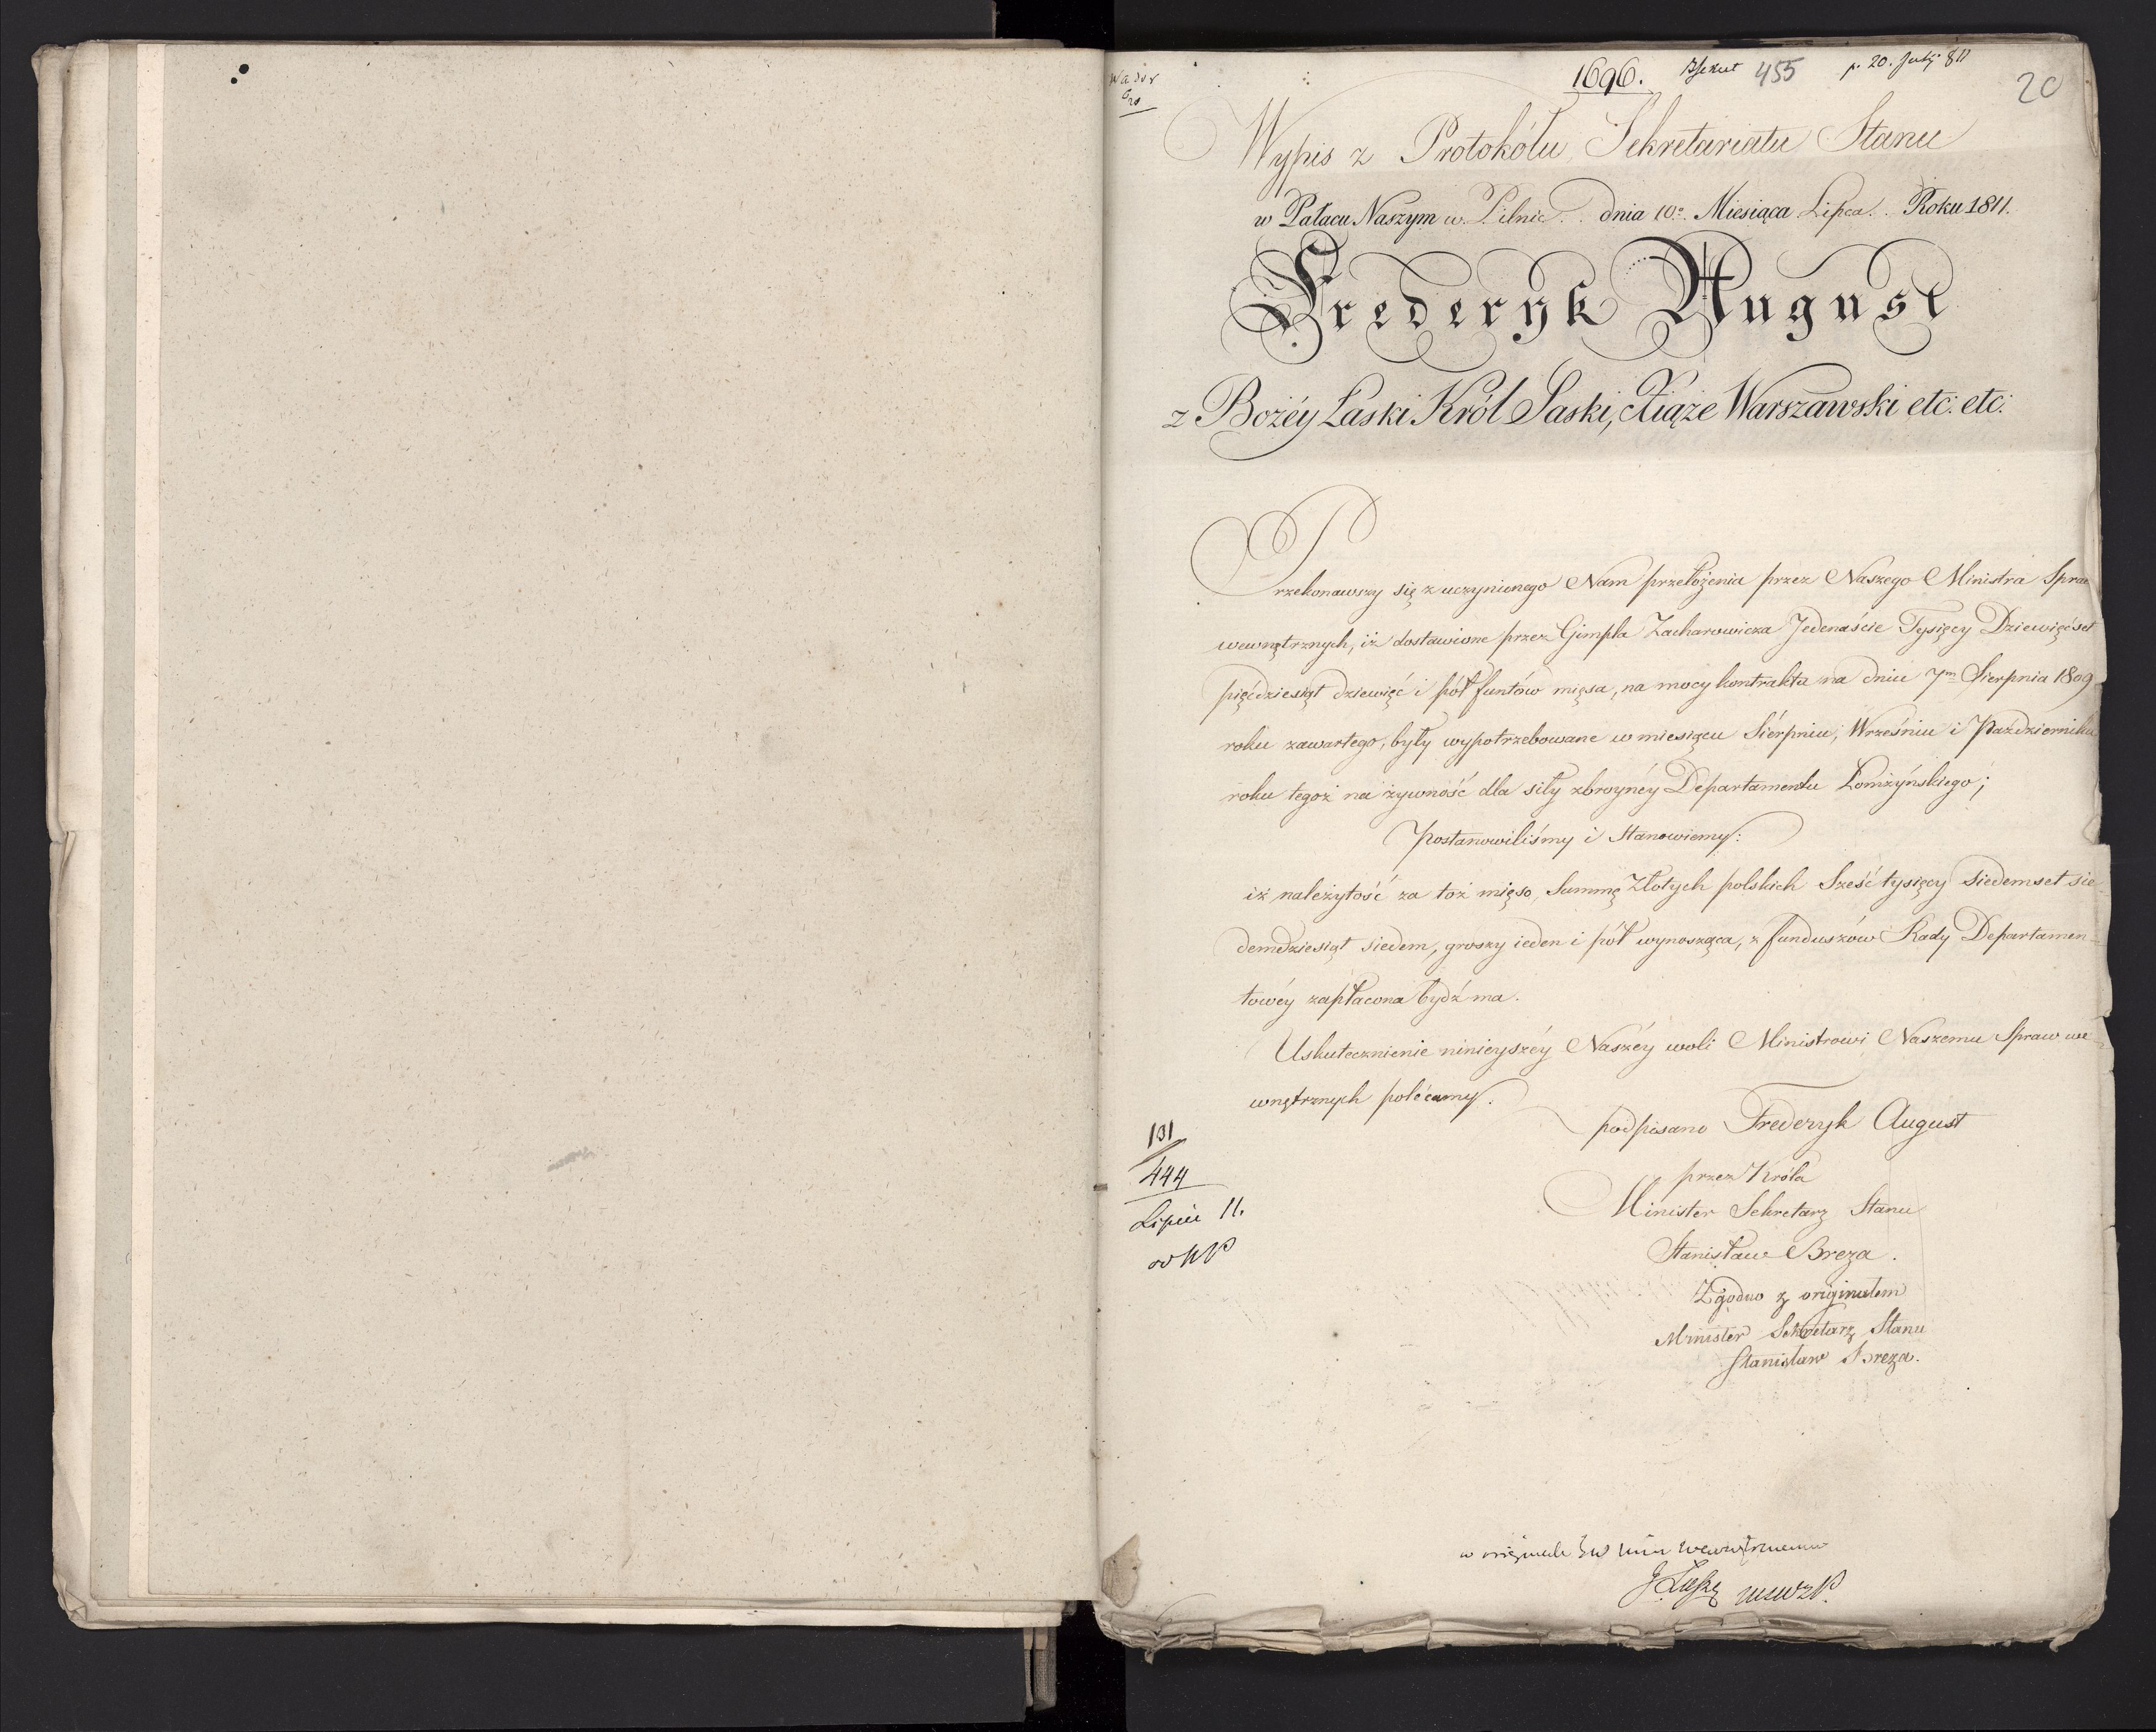 1696. 455 p. 20. July 811
20
Wypis z Protokółu Sekretariatu Stanu
w Pałacu Naszym w Pilnic. dnia 10º. Miesiąca Lipca. Roku 1811.
Frederyk August
z Bożéy Łaski Król Saski, Xiąże Warszawski etc: etc:
Przekonawszy się z uczynionego Nam przełożenia przez Naszego Ministra Spraw
wewnętrznych, iż dostawione przez Gimpla Zacharowicza Jedenaście Tysięcy Dziewięćset
pięćdziesiąt dziewięć i pół funtów mięsa, na mocy kontraktu na dniu 7m Sierpnia 1809
roku zawartego, były wypotrzebowane w miesiącu Sierpniu, Wrześniu i Październiku
roku tegoż na żywność dla siły zbroynéy Departamentu Łomżyńskiego;
Postanowiliśmy i Stanowiemy:
iż należytość za toż mięso, Summę Złotych polskich Sześć tysięcy Siedemset sie-
demdziesiąt siedem, groszy ieden i pół wynosząca, z funduszów Rady Departamen=
towéy zapłacona bydź ma.
Uskutecznienie ninieyszéy Naszéy woli Ministrowi Naszemu Spraw we-
wnętrznych polécamy.
podpisano Frederyk August
przez Króla
Minister Sekretarz Stanu
Stanisław Breza.
Zgodno z originałem
Minister Sekretarz Stanu
Stanisław Breza.
101
444
Lipiec 11.
w originale